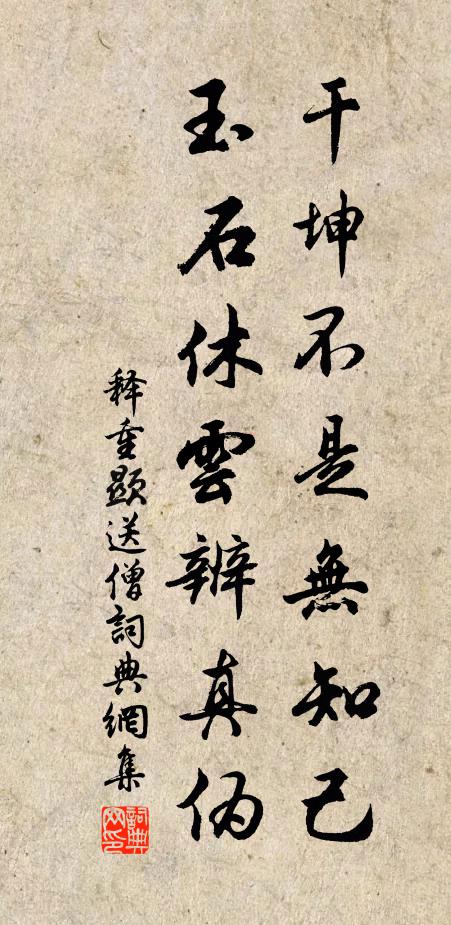 干坤不是無知己
玉石休雲辨真偽
释重顯送僧詞典網集
詞典网印